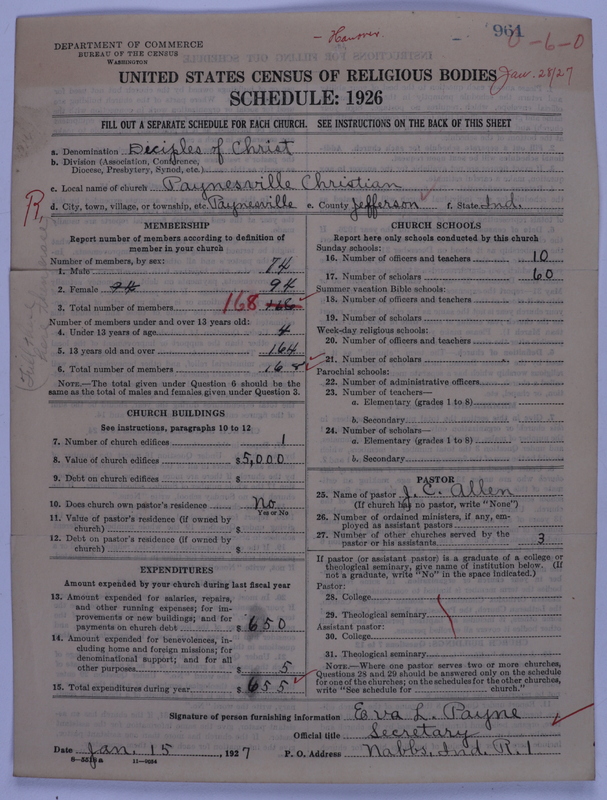 - Hanover.
961
0-6-0
Jan. 28/27
DEPARTMENT OF COMMERCE
BUREAU OF THE CENSUS
WASHINGTON
UNITED STATES CENSUS OF RELIGIOUS BODIES
SCHEDULE: 1926
FILL OUT A SEPARATE SCHEDULE FOR EACH CHURCH. SEE INSTRUCTIONS ON THE BACK OF THIS SHEET
a. Denomination Deciples of Christ
b. Division (Association, Conference,
Diocese, Presbytery, Synod, etc.)
c. Local name of church Paynesville Christian
R,
d. City, town, village, or township, etc. Paynesville e. County Jefferson f. State Ind.
MEMBERSHIP
Report number of members according to definition of
member in your church
Number of members, by sex:
1. Male 74
2. Female 94
3. Total number of members 168
Number of members under and over 13 years old:
4. Under 13 years of age 4
5. 13 years old and over 164
6. Total number of members 168
NOTE.—The total given under Question 6 should be
the same as the total of males and females given under Question 3.
CHURCH BUILDINGS
See instructions, paragraphs 10 to 12
7. Number of church edifices 1
8. Value of church edifices $5,000
9. Debt on church edifices $
10. Does church own pastor's residence No
Yes or No
11. Value of pastor's residence (if owned by
church) $
12. Debt on pastor's residence (if owned by
church) $
EXPENDITURES
Amount expended by your church during last fiscal year
13. Amount expended for salaries, repairs,
and other running expenses; for im-
provements or new buildings; and for
payments on church debt $650
14. Amount expended for benevolences, in-
cluding home and foreign missions; for
denominational support; and for all
other purposes $5
15. Total expenditures during year $655
CHURCH SCHOOLS
Report here only schools conducted by this church
Sunday schools:
16. Number of officers and teachers 10
17. Number of scholars 60
Summer vacation Bible schools:
18. Number of officers and teachers
19. Number of scholars
Week-day religious schools:
20. Number of officers and teachers
21. Number of scholars
Parochial schools:
22. Number of administrative officers
23. Number of teachers—
a. Elementary (grades 1 to 8)
b. Secondary
24. Number of scholars—
a. Elementary (grades 1 to 8)
b. Secondary
PASTOR
25. Name of pastor J. C. Allen
(If church has no pastor, write "None")
26. Number of ordained ministers, if any, em-
ployed as assistant pastors
27. Number of other churches served by the
pastor or his assistants 3
If pastor (or assistant pastor) is a graduate of a college or
theological seminary, give name of institution below. (If
not a graduate, write "No" in the space indicated.)
Pastor:
28. College
29. Theological seminary
Assistant pastor:
30. College
31. Theological seminary
NOTE.—Where one pastor serves two or more churches,
Questions 28 and 29 should be answered only on the schedule
for one of the churches; on the schedules for the other churches,
write "See schedule for church."
Signature of person furnishing information Eva L. Payne
Official title Secretary
Date Jan. 15, 1927 P. O. Address Nabbs, Ind. R. 1
8-5518a 11-9654